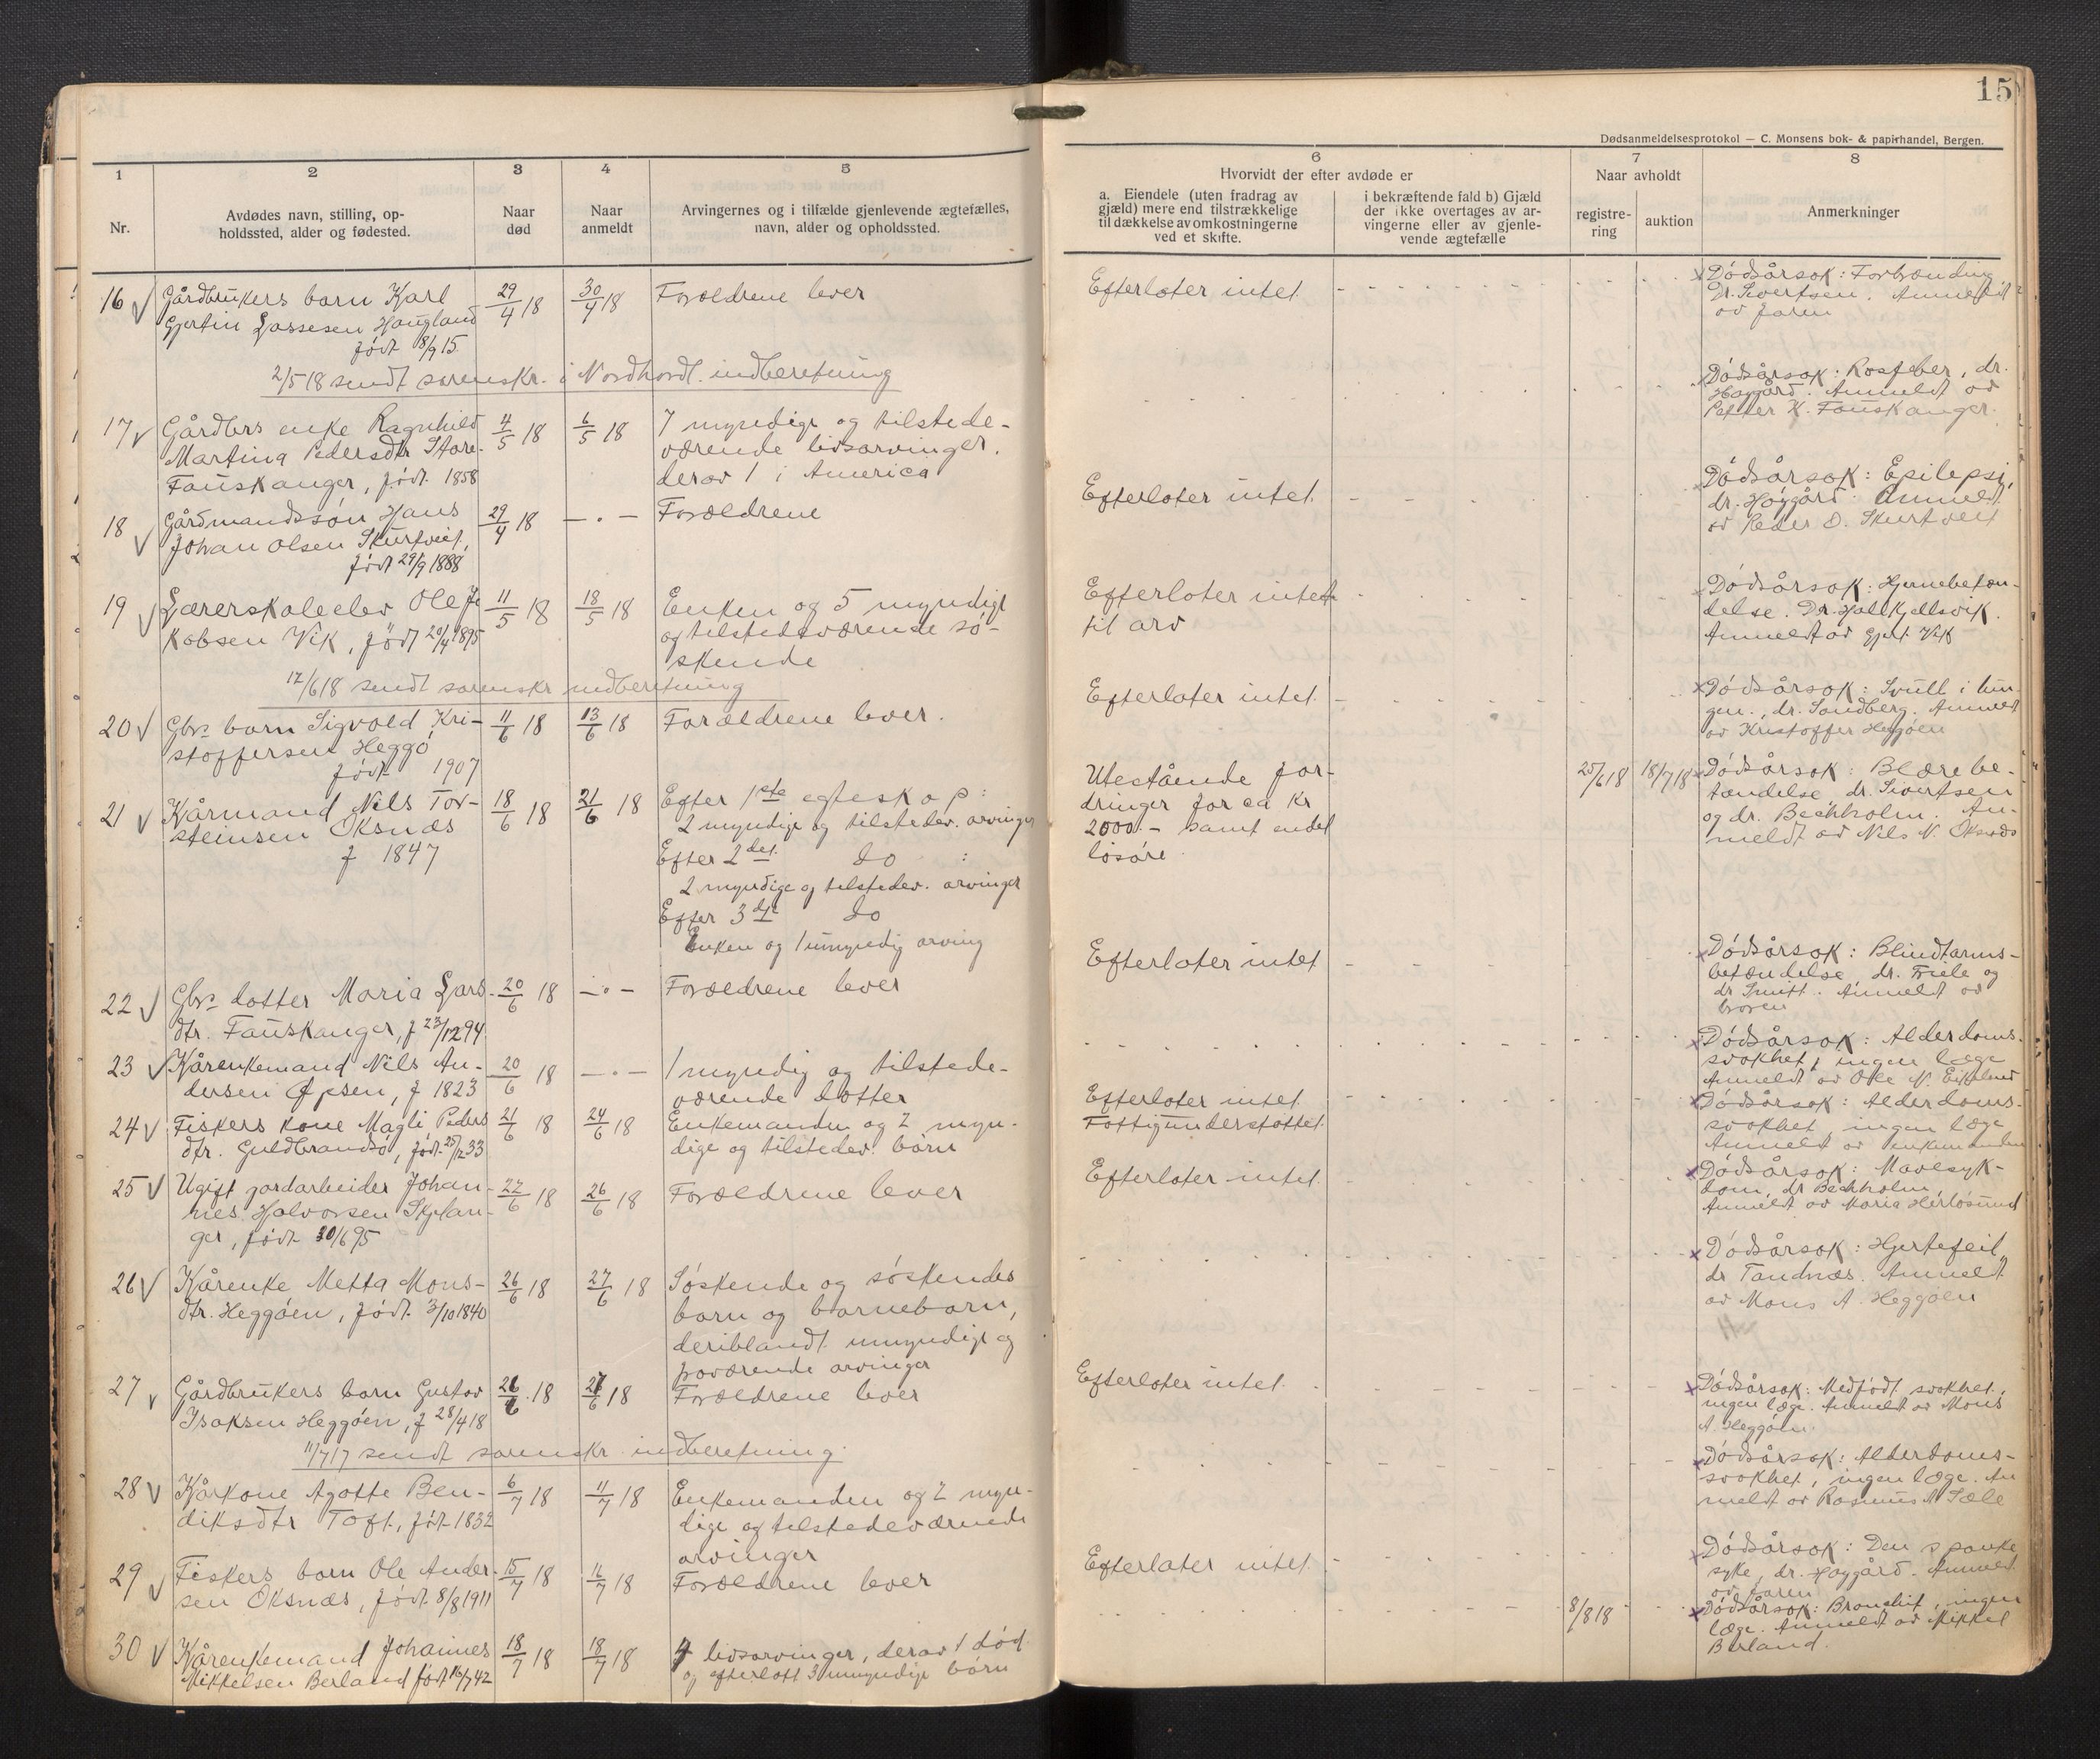 15
Dødsanmeldelsesprotokol — C. Monsens bok- & papirhandel, Bergen.
1
Nr.
2
Avdødes navn, stilling, op-
holdssted, alder og fødested.
3
Naar
død
4
Naar
anmeldt
5
Arvingernes og i tilfælde gjenlevende ægtefælles,
navn, alder og opholdssted.
6
Hvorvidt der efter avdøde er
a. Eiendele (uten fradrag av
gjæld) mere end tilstrækkelige
til dækkelse av omkostningerne
ved et skifte.
i bekræftende fald b) Gjæld
der ikke overtages av ar-
vingerne eller av gjenle-
vende ægtefælle
7
Naar avholdt
registre-
ring
auktion
8
Anmerkninger
16 Gårdbrukers barn Karl
Gjertin Lassesen Haugland
født 8/9 15
29/4 18
30/4 18
Forældrene lever
Efterlater intet
Dødsårsak: Forbrænding
Dr. Sivertsen. Anmeldt
av faren
2/5 18 sendt sorenskr. i Nordhordl. indberetning
17 Gårdbrs enke Ragnhild
Martina Pedersdtr Store-
Fauskanger, født 1858
4/5 18
6/5 18
7 myndige og tilstede-
værende livsarvinger,
derav 1 i America
Dødsårsak: Rosfeber, dr.
Høygård. Anmeldt av
Petter K. Fauskanger.
18 Gårdmandssøn Hans
Johan Olsen Skurtveit,
født 29/9 1888
29/4 18
— . —
Forældrene
Efterlater intet
Dødsårsak: Epilepsi,
dr. Høygård. Anmeldt
av Peder O. Skurtveit
19 Lærerskoleelev Ole Ja-
kobsen Vik, født 20/4 1895
11/5 18
18/5 18
Enken og 5 myndige
og tilstedeværende sø-
skende
Efterlater intet
til arv
Dødsårsak: Hjernebetæn-
delse. Dr. Hall Kjellsvik.
Anmeldt av Gjert Vik
12/6 18 sendt sorenskr indberetning
20 Gbrs barn Sigvald Kri-
stoffersen Heggø
født 1907
11/6 18
13/6 18
Forældrene lever.
Efterlater intet
Dødsårsak: Svull i lun-
gen, dr. Sandberg. Anmeldt
av Kristoffer Heggøen
21 Kårmand Nils Tor-
steinsen Oksnæs
f 1847
18/6 18
21/6 18
Efter 1ste egteskap:
2 myndige og tilstedev. arvinger
Efter 2det do :
2 myndige og tilstedev. arvinger
Efter 3dje do
Enken og 1 umyndig arving
Utestående for-
dringer for ca kr
2000.- samt endel
løsøre
25/6 18
18/7 18
Dødsårsak: Blærebe-
tændelse dr. Sivertsen
og dr. Bechholm. An-
meldt av Nils N. Oksnæs
22 Gbrs datter Maria Lars-
dtr. Fauskanger, f 23/12 94
20/6 18
— . —
Forældrene lever
Efterlater intet
Dødsårsak: Blindtarms-
betændelse, dr. Friele og
dr Smitt. Anmeldt av
broren
23 Kårenkemand Nils An-
dersen Åpsen, f 1823
20/6 18
— . —
1 myndig og tilstede-
værende datter
Dødsårsak: Alderdoms-
svakhet, ingen læge
Anmeldt av Ole N. Eikeland
24 Fiskers kone Magli Peders
dtr. Guldbrandsø, født 25/12 33
21/6 18
24/6 18
Enkemanden og 2 myn-
dige og tilstedev. børn
Efterlater intet
Fattigunderstøttet
Dødsårsak: Alderdoms-
svakhet, ingen læge
Anmeldt av enkemanden
25 Ugift jordarbeider Johan-
nes Halvorsen Skjelan-
ger, født 30/6 95
22/6 18
26/6 18
Forældrene lever
Efterlater intet
Dødsårsak: Mavesyk-
dom, dr Bechholm.
Anmeldt av Maria Herløsund
26 Kårenke Metta Mons-
dtr. Heggøen, født 3/10 1840
26/6 18
27/6 18
Søskende og søskendes
barn og barnebarn,
deriblandt umyndige og
fraværende arvinger
Dødsårsak: Hjertefeil,
dr Tandnæs. Anmeldt
av Mons A. Heggøen
27 Gårdbrukers barn Gustav
Isaksen Heggøen, f 28/4 18
26/6 18
27/6 18
Forældrene lever
Efterlater intet
Dødsårsak: Medfødt svakhet,
ingen læge. Anmeldt av Mons
A. Heggøen.
11/7 17 sendt sorenskr. indberetning.
28 Kårkone Agatte Ben-
diksdtr Toft, født 1832
6/7 18
11/7 18
Enkemanden og 2 myn-
dige og tilstedeværende
arvinger
Dødsårsak: Alderdoms-
svakhet, ingen læge. An
meldt av Rasmus A Sæle
29 Fiskers barn Ole Ander-
sen Oksnæs, født 8/8 1911
15/7 18
16/7 18
Forældrene lever
Efterlater intet
Dødsårsak: Den spanske
syke, dr. Høygård. Anmeldt
av faren
30 Kårenkemand Johannes
Mikkelsen Berland født 16/7 42
18/7 18
18/7 18
4 livsarvinger, derav 1 død
og efterlatt 3 umyndige børn
8/8 18
Dødsårsak: Bronchit, ingen
læge. Anmeldt av Mikkel
Berland.